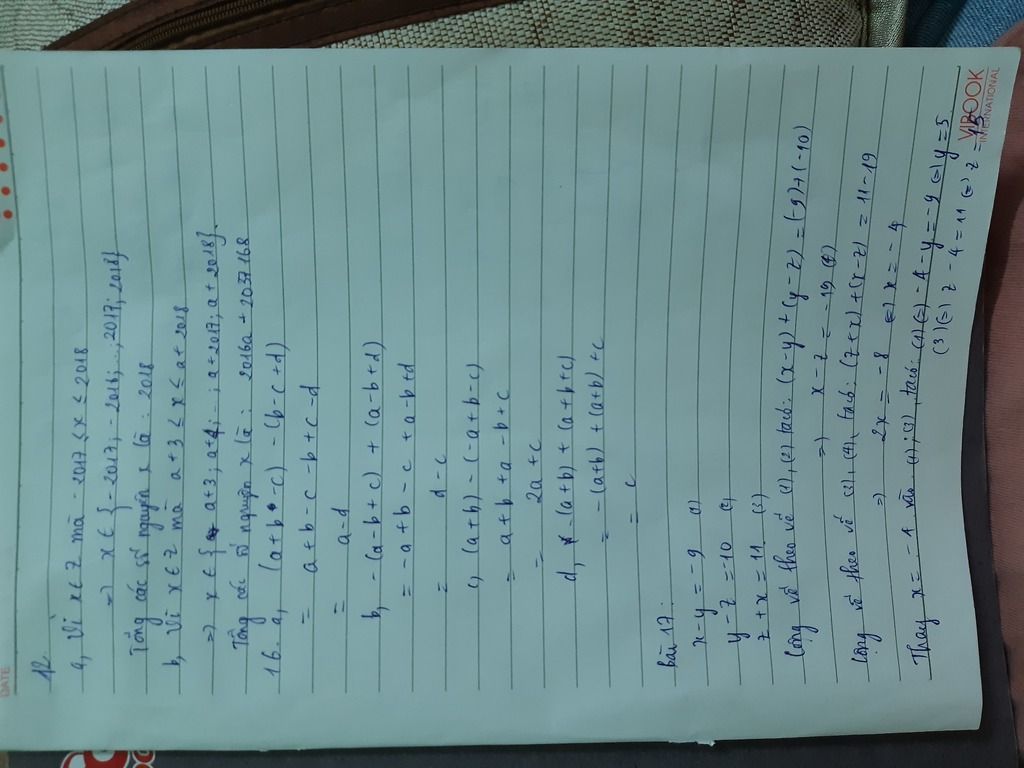 DATE
12.
a, Vì x ∈ Z mà - 2017 < x ≤ 2018
=) x ∈ {- 2017; - 2016; ...; 2017; 2018}
Tổng các số nguyên x là : 2018
b, Vì x ∈ Z mà a + 3 ≤ x ≤ a + 2018
=) x ∈ { a+3 ; a+4; ... ; a + 2017; a + 2018}.
Tổng các số nguyên x là : 2016a + 2037168
16. a, (a + b - c) - (b - c + d)
= a + b - c - b + c - d
= a - d
b, - (a - b + c) + (a - b + d)
= - a + b - c + a - b + d
= d - c
c, (a + b) - (- a + b - c)
= a + b + a - b + c
= 2a + c
d, - (a + b) + (a + b + c)
= - (a+b) + (a+b) + c
= c
bài 17:
x - y = - 9 (1)
y - z = -10 (2)
z + x = 11 (3)
Cộng vế theo vế (1), (2), tacó: (x - y) + (y - z) = (-9) + (-10)
=) x - z = -19 (4)
Cộng vế theo vế (3), (4), tacó: (z + x) + (x - z) = 11 - 19
=) 2x = - 8 (=) x = - 4
Thay x = - 4 vào (1); (3), tacó: (1) (=) - 4 - y = - 9 (=) y = 5
(3) (=) z - 4 = 11 (=) z = 15
VIBOOK
INTERNATIONAL